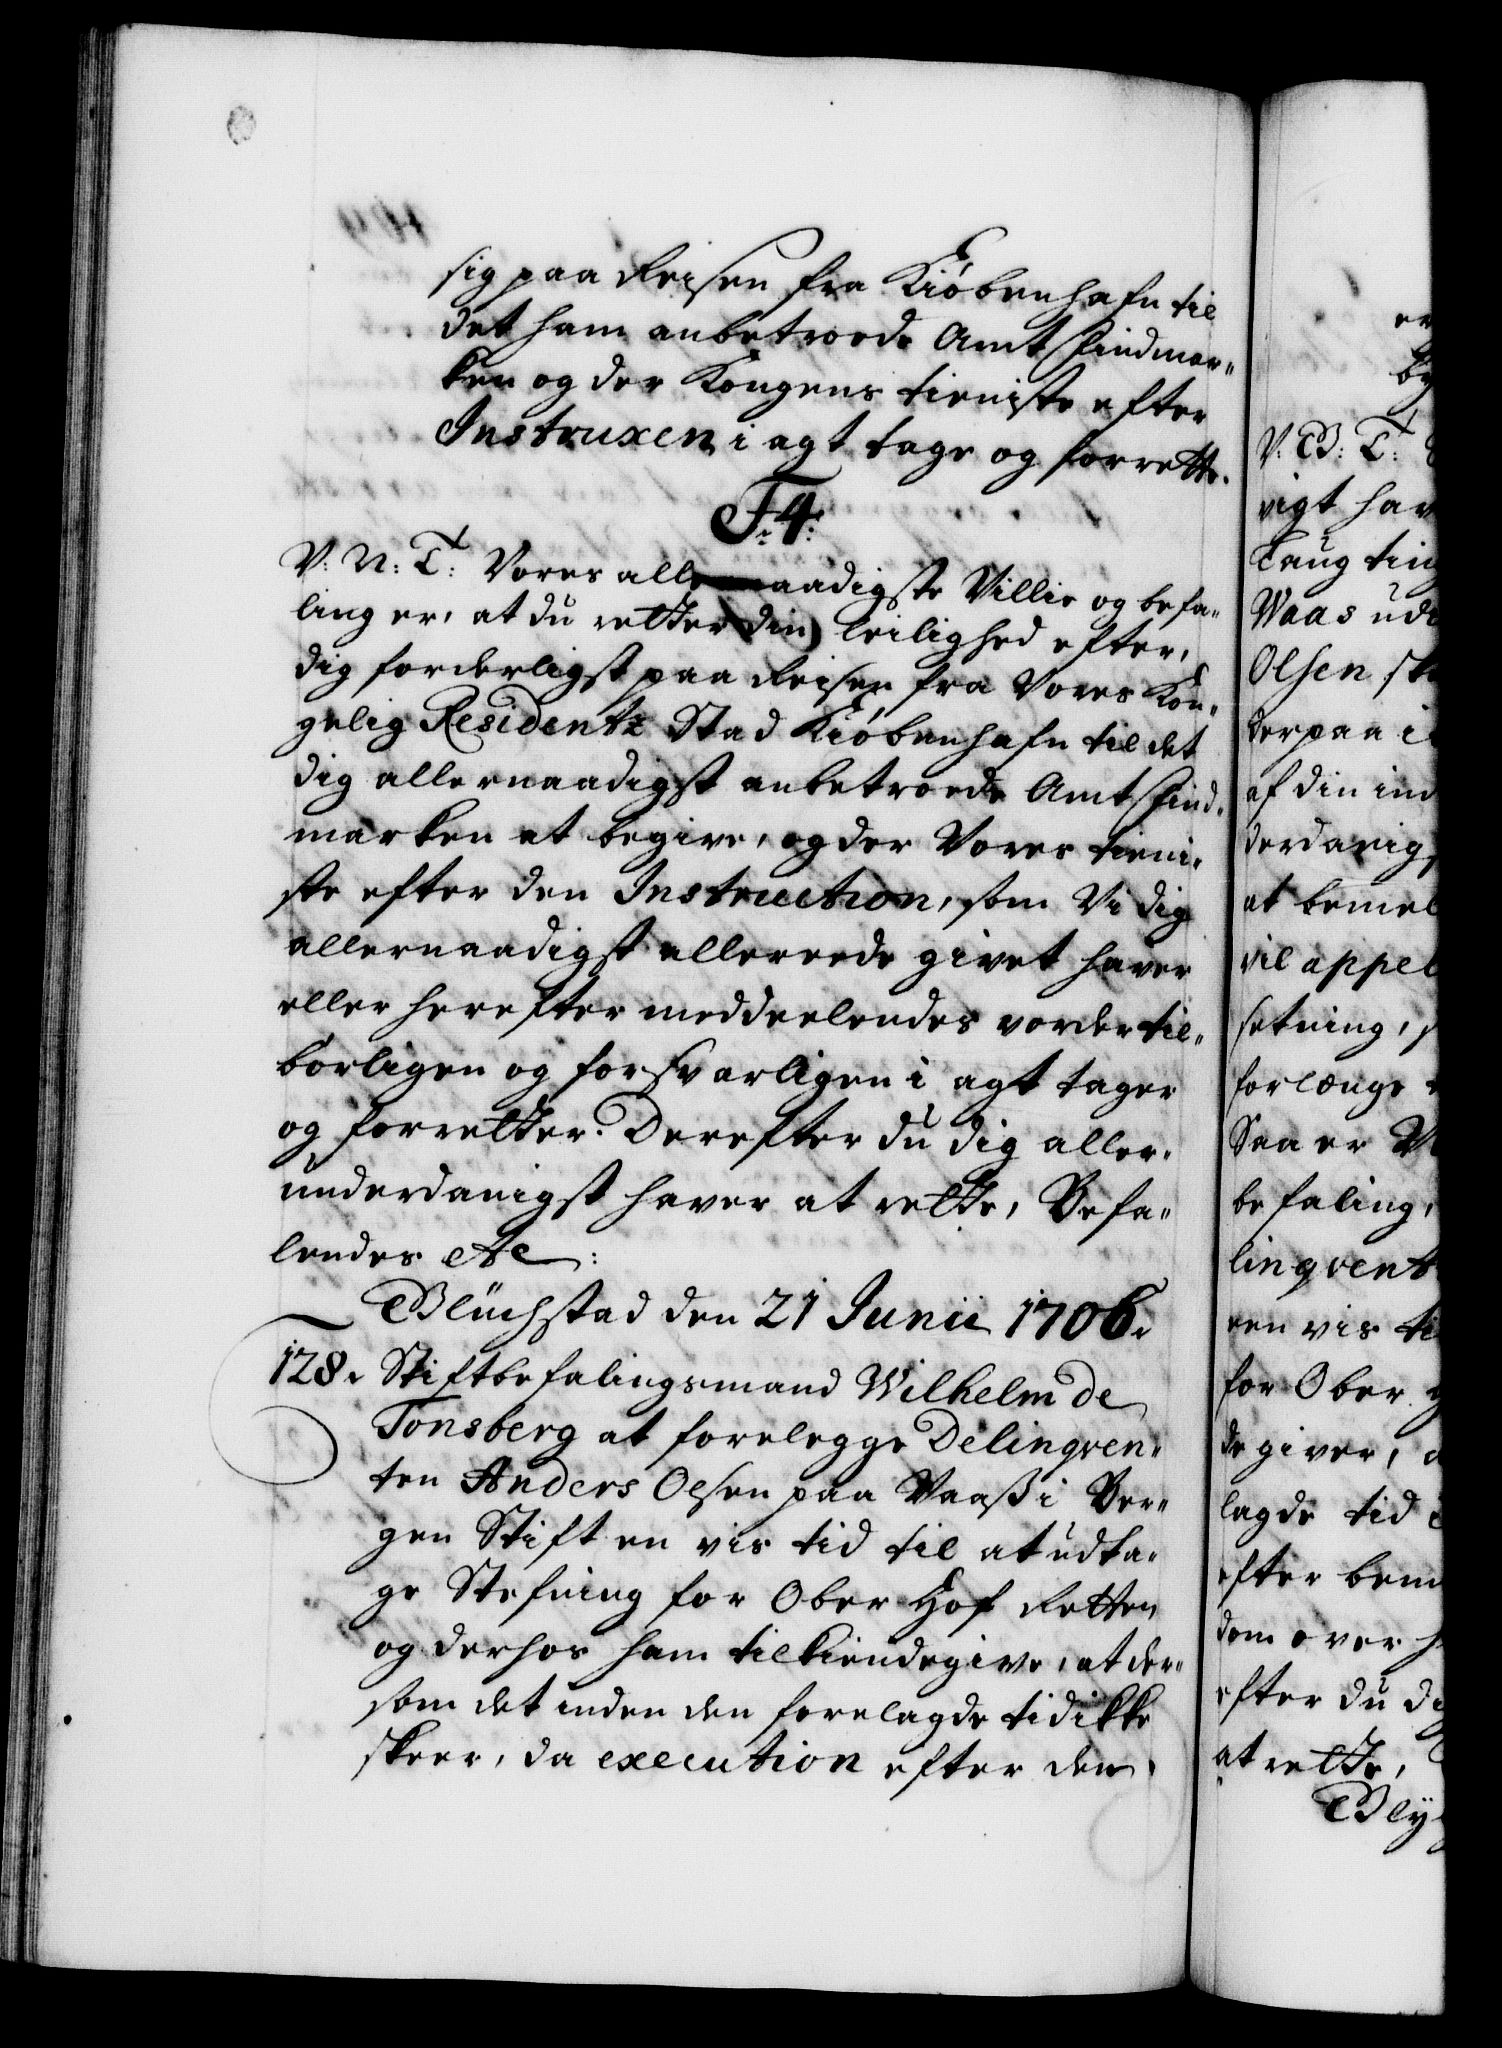 sig paa Reisen fra Kiöbenhafn til
det ham anbetroede Amt Findmar-
ken og der Kongens tieniste efter
Instruxen i agt tage og forrette.
F: 4:
V: N: T: Vores allernaadigste Villie og befa-
ling er, at du retter din leilighed efter,
dig forderligst paa Reisen fra Vores Kon-
gelig Residentz Stad Kiöbenhafn til det
dig allernaadigst anbetroede Amt Find-
marken at begive, og der Vores tieni-
ste efter den Instruction, som Vi dig
allernaadigst allereede givet haver
eller herefter meddeelendes vorder til-
börligen og forsvarligen i agt tager
og forretter. Derefter du dig aller-
underdanigst haver at rette, Befa-
lendes etc:
Glückstad den 21 Junii 1706.
128. Stiftbefalingsmand Wilhelm de
Tonsberg at forelegge Delinqven-
ten Anders Olsen paa Vaass i Ber-
gen Stift en vis tid til at udta-
ge Stefning for Ober Hof Retten
og derhos ham tilkiendegive, at der-
som det inden den forelagde tid ikke
skeer, da execution efter den
V: G: T:
vigt hav
Laugting
Waas ude
Olsen
derpaa i
af din ind
derdanigs
at bemel
vil appel
setning,
forlænge
Saa er V
befaling,
linqvent
een vis ti
for Ober
de giver,
lagde tid
efter bem
dom over h
efter du di
at rette,
Gly